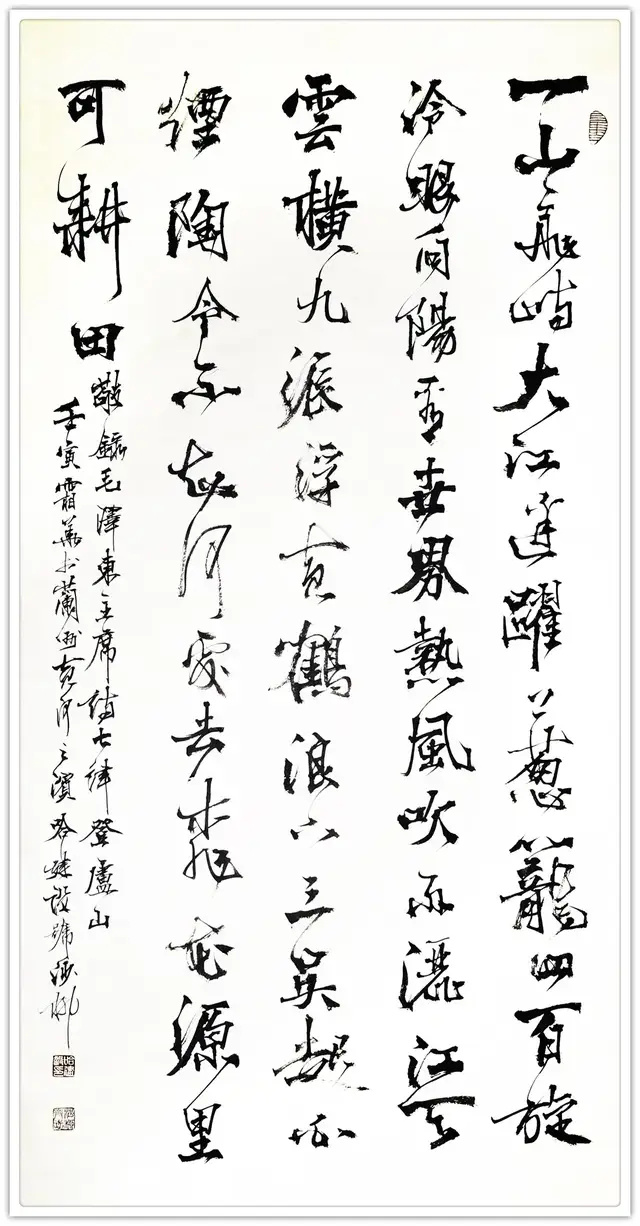 一山飛峙大江邊躍上蔥籠四百旋
冷眼向陽看世界熱風吹雨灑江天
雲橫九派浮黃鶴浪下三吳起白
煙陶令不知何處去桃花源里
可耕田
敬錄毛澤東主席詩七律登廬山
壬寅霜華於蘭州黃河之濱哈建設號